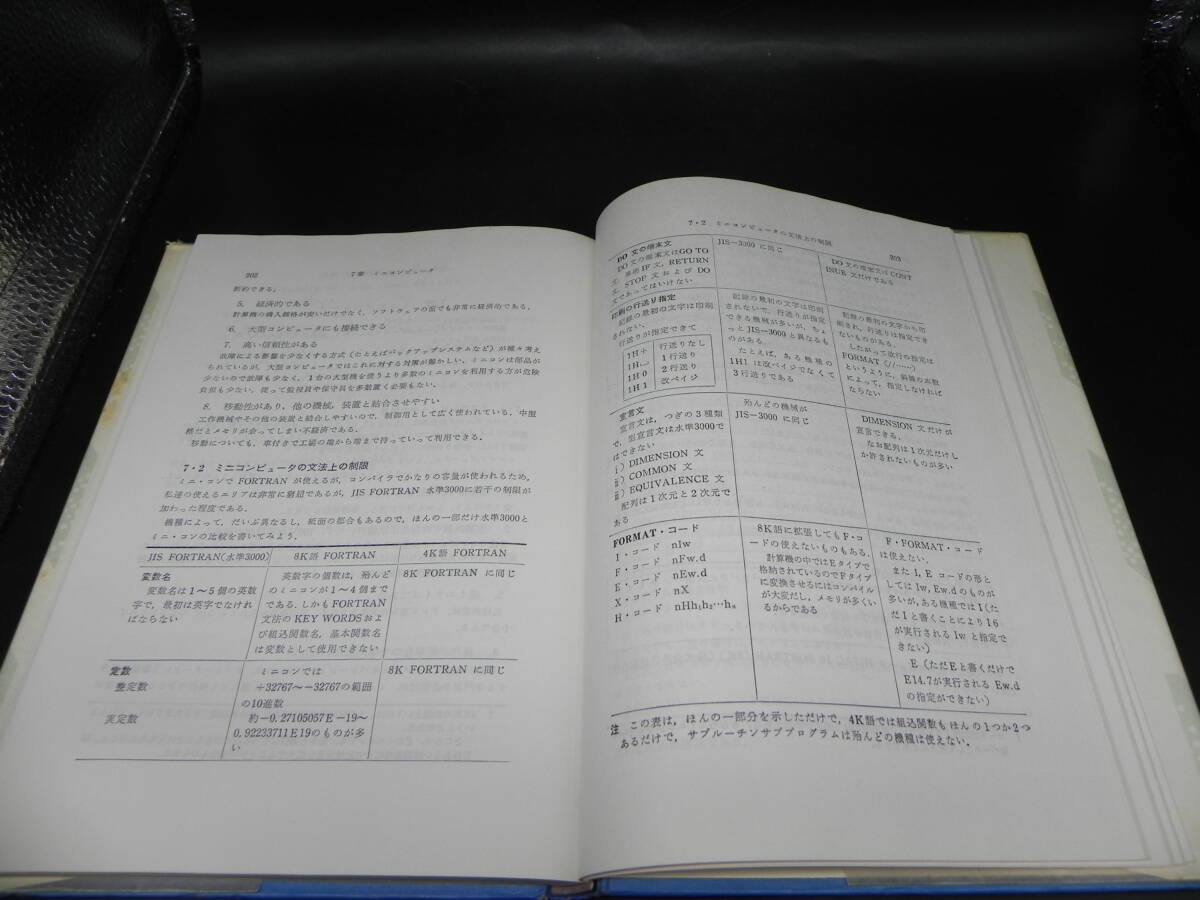 202　7章　ミニコンピュータ
節約できる．
5.　経済的である
計算機の購入価格が安いだけでなく，ソフトウェアの面でも非常に経済的である．
6.　大型コンピュータにも接続できる
7.　高い信頼性がある
故障による影響を少なくする方式(たとえばバックアップシステムなど)が種々考え
られているが，大型コンピュータではこれに対する対策が難かしい．ミニコンは部品が
少ないので故障も少なく，1台の大型機を使うより多数のミニコンを利用する方が危険
負担も少ない．従って監視員や保守員を多数置く必要もない．
8.　移動性があり，他の機械，装置と結合させやすい
工作機械やその他の装置と結合しやすいので，制御用として広く使われている．中型
機だとメモリが余ってしまい不経済である．
移動についても，車付きで工場の端から端まで持っていって利用できる．
7・2　ミニコンピュータの文法上の制限
ミニ・コンで FORTRAN が使えるが，コンパイラでかなりの容量が使われるため，
私達の使えるエリアは非常に窮屈であるが，JIS FORTRAN 水準3000に若干の制限が
加わった程度である．
機種によって，だいぶ異なるし，紙面の都合もあるので，ほんの一部だけ水準3000と
ミニ・コンの比較を書いてみよう．
JIS FORTRAN(水準3000)　8K語 FORTRAN　4K語 FORTRAN
変数名
変数名は1～5個の英数
字で，最初は英字でなけれ
ばならない
英数字の個数は，殆んど
のミニコンが1～4個まで
である．しかもFORTRAN
文法のKEY WORDSおよ
び組込関数名，基本関数名
は変数として使用できない
8K FORTRAN に同じ
定数
整定数
実定数
ミニコンでは
+32767～−32767の範囲
の10進数
約−0.27105057E−19～
0.92233711E19のものが多
い
8K FORTRAN に同じ
7・2　ミニコンピュータの文法上の制限　203
DO 文の端末文
DO 文の端末文はGO TO
文，算術IF文，RETURN
文，STOP 文および DO
文であってはいけない
JIS−3000 に同じ
DO 文の端末文は CONT
INUE 文だけである
印刷の行送り指定
記録の最初の文字は印刷
されない．
行送りが指定できて
1H+　行送りなし
1H　1行送り
1H 0　2行送り
1H 1　改ページ
記録の最初の文字は印刷
されないで，行送りが指定
できる機械が多いが，ちょ
っと JIS−3000 と異なるも
のがある．
たとえば，ある機種の
1H1 は改ページでなくて
3行送りである
記録の最初の文字から印
刷され，行送りは指定でき
ないものがある．
したがって改行の指定は
FORMAT (//……)
というように，斜線の本数
によって，指定しなければ
ならない
宣言文
宣言文は，つぎの3種類
で，型宣言文は水準3000で
はできない
i) DIMENSION 文
ii) COMMON 文
iii) EQUIVALENCE 文
配列は1次元と2次元で
ある
殆んどの機械が
JIS−3000 に同じ
DIMENSION 文だけが
宣言できる．
なお配列は1次元だけし
か許されないものが多い
FORMAT・コード
I・コード　nIw
F・コード　nFw.d
E・コード　nEw.d
X・コード　nX
H・コード　nHh₁h₂…hₙ
8K語に拡張してもF・コ
ードの使えないものもある．
計算機の中ではEタイプで
格納されているのでFタイプ
に変換させるにはコンパイル
が大変だし，メモリが多くい
るからである
F・FORMAT・コード
は使えない．
また I, E コードの形と
しては Iw, Ew.dのものが
多いが，ある機種ではI(た
だIと書くことにより I6
が実行される Iw と指定で
きない)
E (ただEと書くだけで
E14.7が実行される Ew.d
の指定ができない)
注　この表は，ほんの一部分を示しただけで，4K語では組込関数もほんの1つか2つ
あるだけで，サブルーチンサブプログラムは殆んどの機種は使えない．